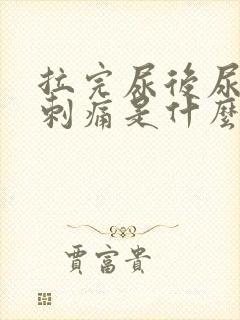 拉完尿後尿
刺痛是什麼
賈富貴